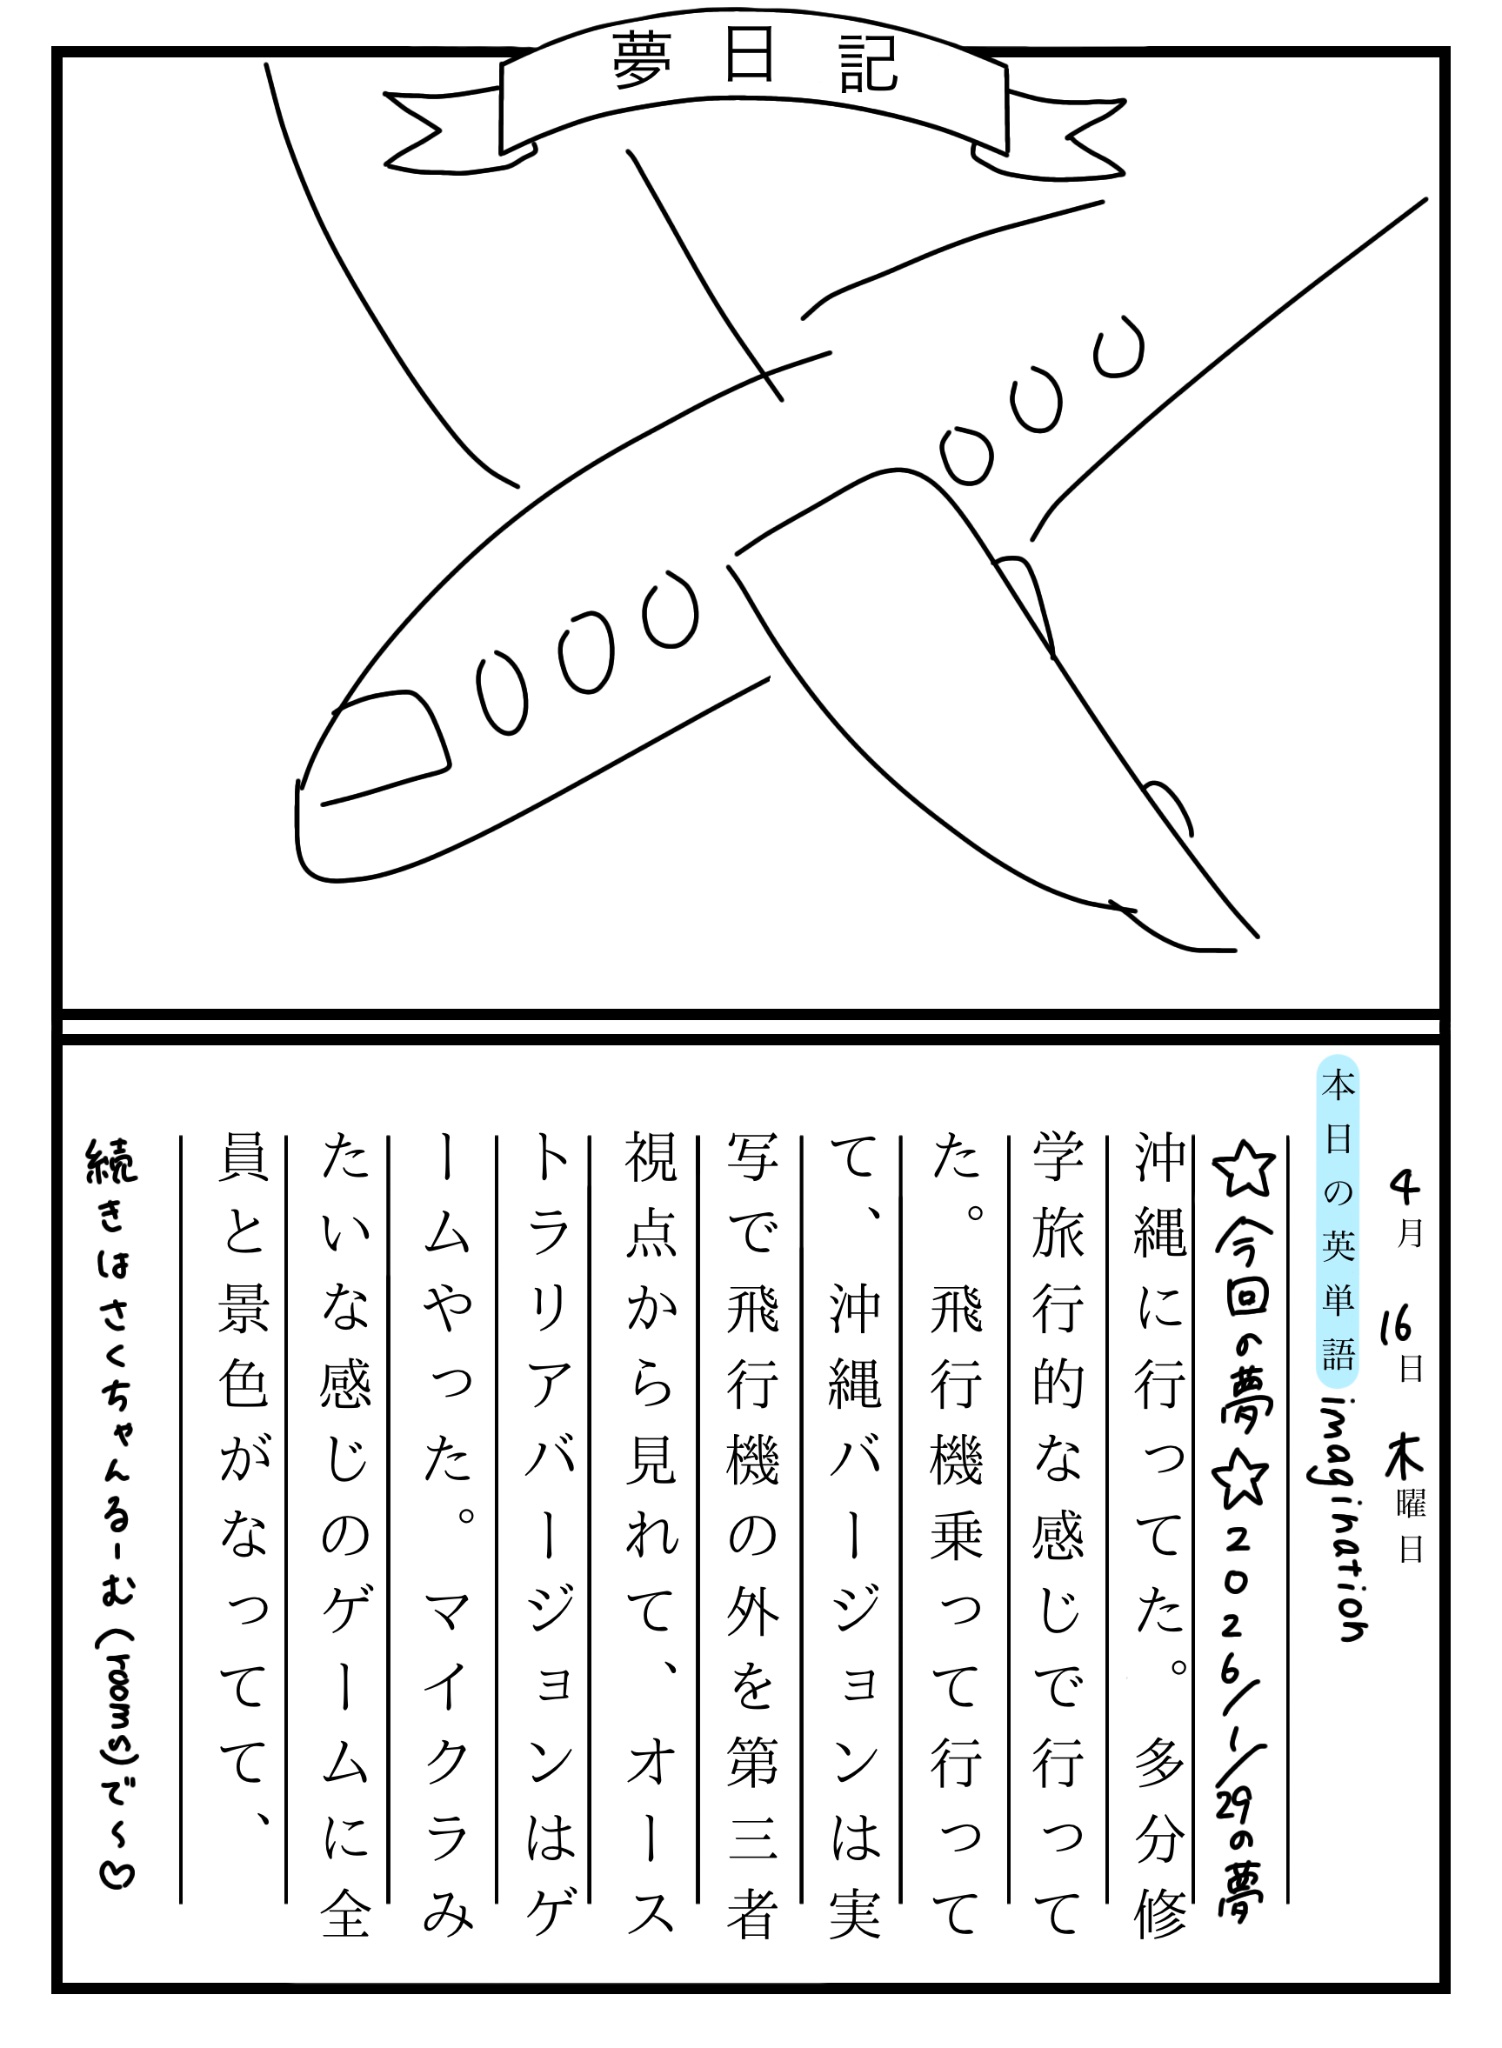 夢日記
4月 16日 木曜日
本日の英単語 imagination
☆今回の夢☆2026/1/29の夢
沖縄に行ってた。多分修
学旅行的な感じで行って
た。飛行機乗って行って
て、沖縄バージョンは実
写で飛行機の外を第三者
視点から見れて、オース
トラリアバージョンはゲ
ームやった。マイクラみ
たいな感じのゲームに全
員と景色がなってて、
続きはさくちゃんるーむ(rooms)で〜♡